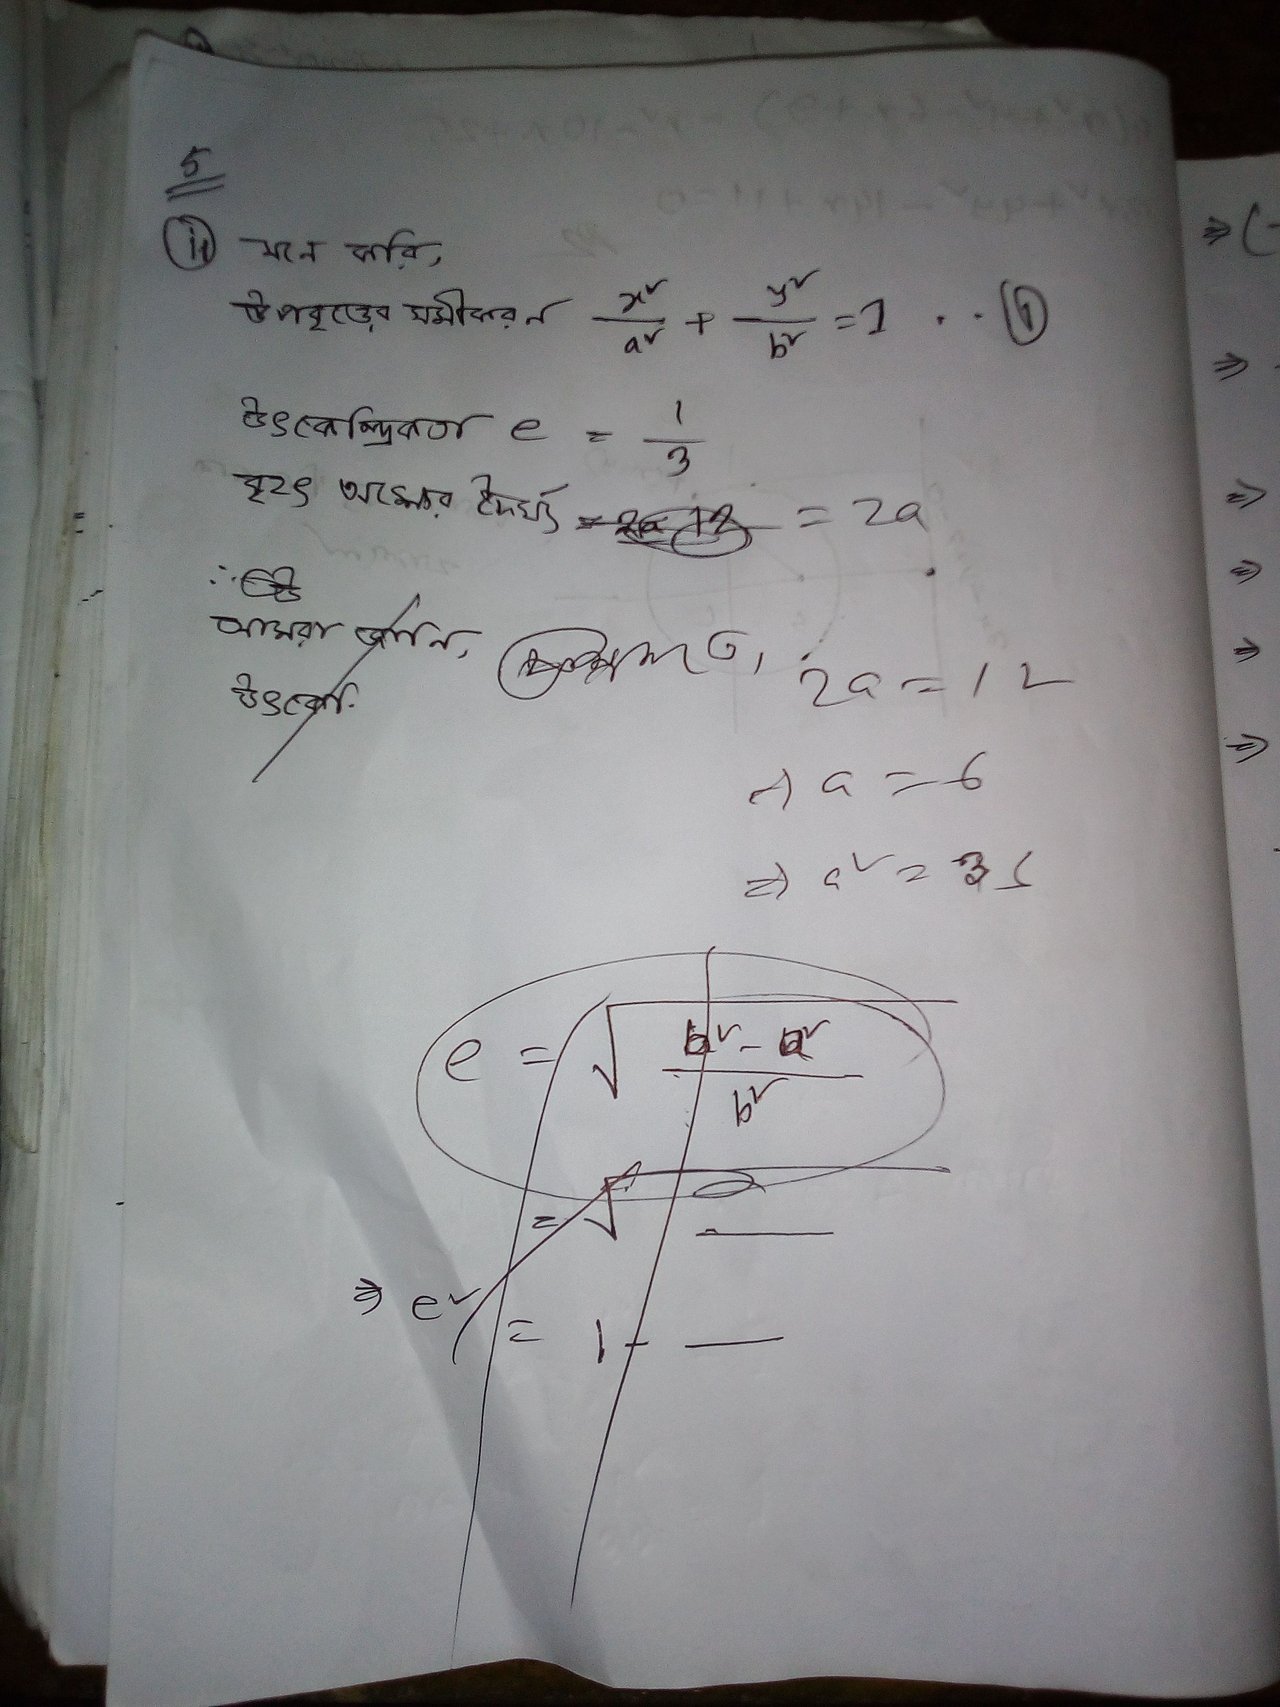 5
ii মনে করি,
উপবৃত্তের সমীকরন x²/a² + y²/b² = 1 . . . i
উৎকেন্দ্রিকতা e = 1/3
বৃহৎ অক্ষের দৈর্ঘ্য = 2a
আমরা জানি,
2a = 12
⇒ a = 6
⇒ a² = 36
e = √ b² - a² / b²
= √
⇒ e² = 1 -